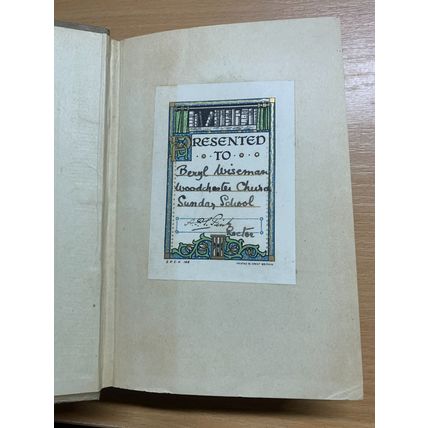 PRESENTED
TO
Beryl Wiseman
Woodchester Church
Sunday School
Rector
PRINTED IN GREAT BRITAIN